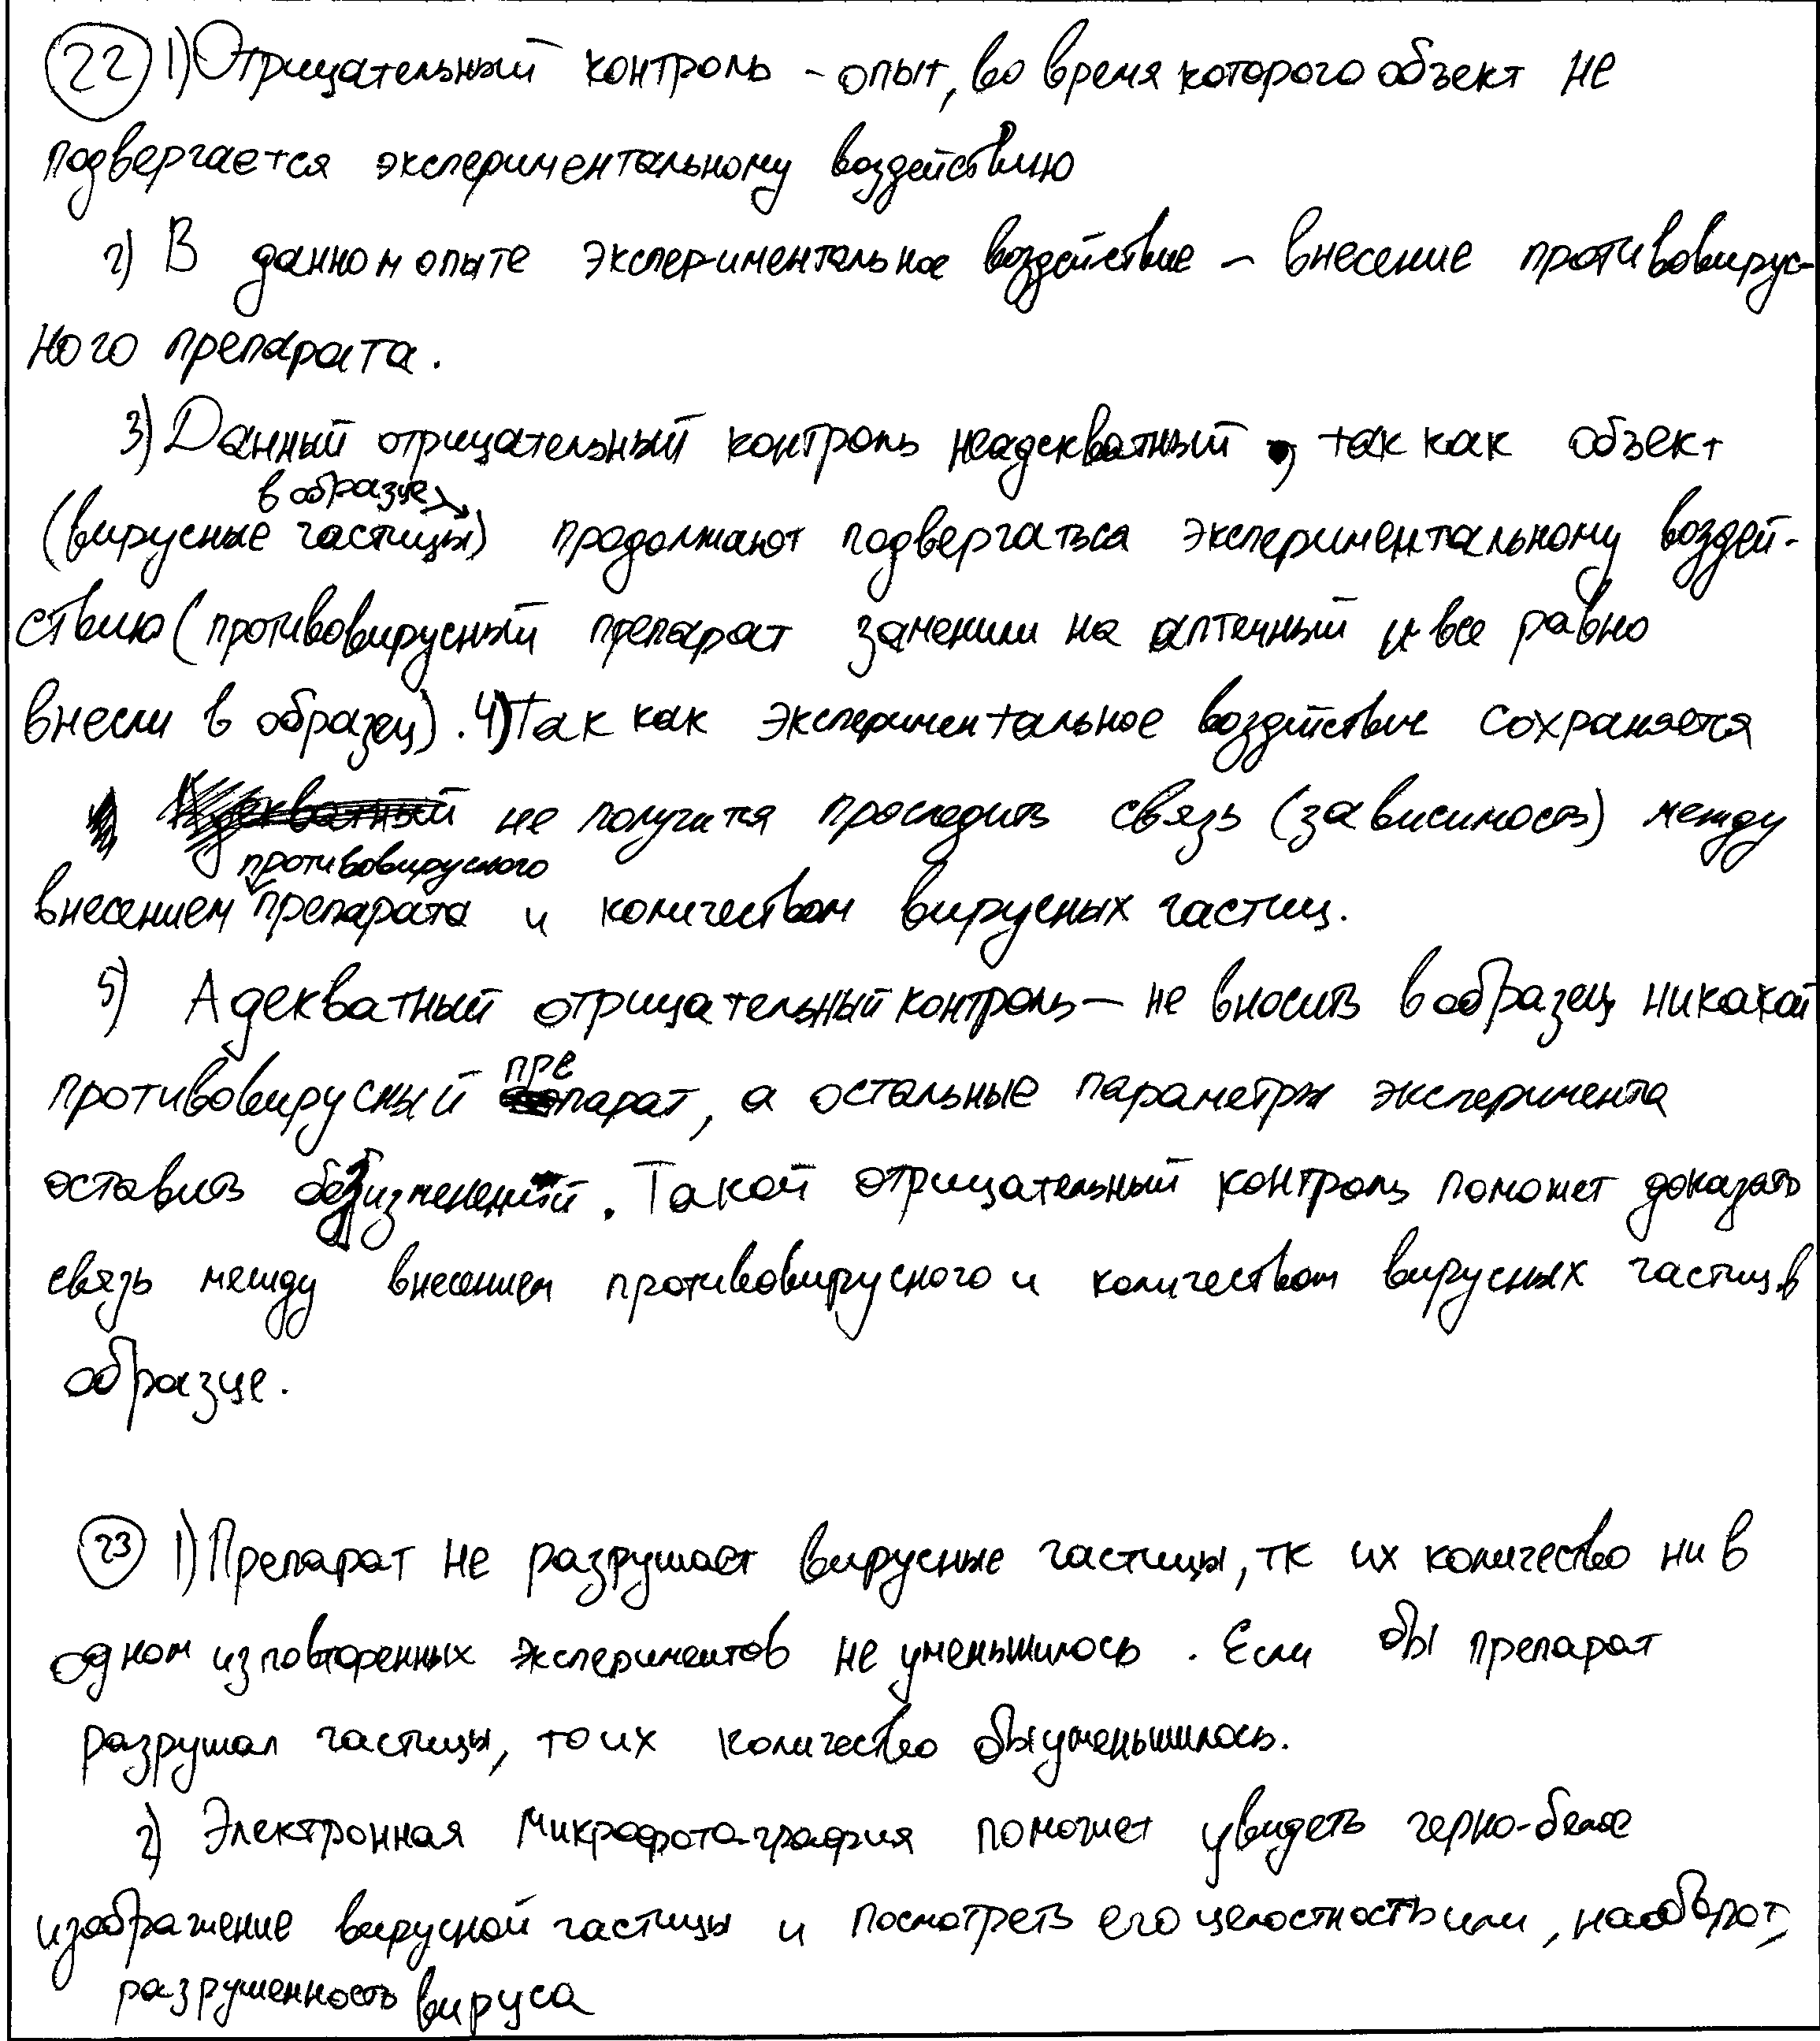 22 1) Отрицательный контроль - опыт, во время которого объект не
подвергается экспериментальному воздействию
2) В данном опыте экспериментальное воздействие - внесение противовирус-
ного препарата.
3) Данный отрицательный контроль неадекватный, так как объект
в образце
(вирусные частицы) продолжают подвергаться экспериментальному воздей-
ствию (противовирусный препарат заменили на аптечный и все равно
внесли в образец). 4) Так как экспериментальное воздействие сохраняется
не получится проследить связь (зависимость) между
противовирусного
внесением препарата и количеством вирусных частиц.
5) Адекватный отрицательный контроль - не вносить в образец никакой
противовирусный препарат, а остальные параметры эксперимента
оставить без изменений. Такой отрицательный контроль поможет доказать
связь между внесением противовирусного и количеством вирусных частиц в
образце.
23 1) Препарат не разрушает вирусные частицы, тк их количество ни в
одном из повторенных экспериментов не уменьшилось. Если бы препарат
разрушал частицы, то их количество бы уменьшилось.
2) Электронная микрофотография поможет увидеть черно-белое
изображение вирусной частицы и посмотреть его целостность или, наоборот,
разрушенность вируса